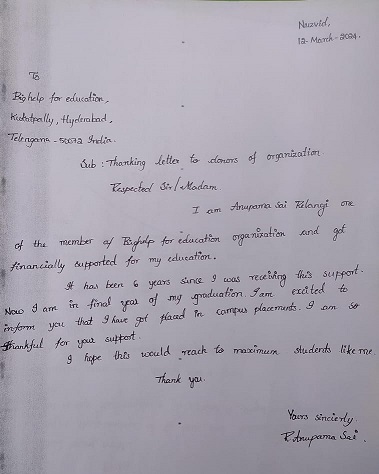 Nuzvid,
12-March-2024.
To
Bighelp for education,
Kukatpally, Hyderabad,
Telengana - 50072 India.
Sub : Thanking letter to donors of organization
Respected Sir/Madam
I am Anupama Sai Relangi one
of the member of Bighelp for education organization and got
financially supported for my education.
It has been 6 years since I was receiving this support.
Now I am in final year of my graduation. I am excited to
inform you that I have got placed in campus placements. I am so
thankful for your support.
I hope this would reach to maximum students like me.
Thank you.
Yours sincierly.
R. Anupama Sai.